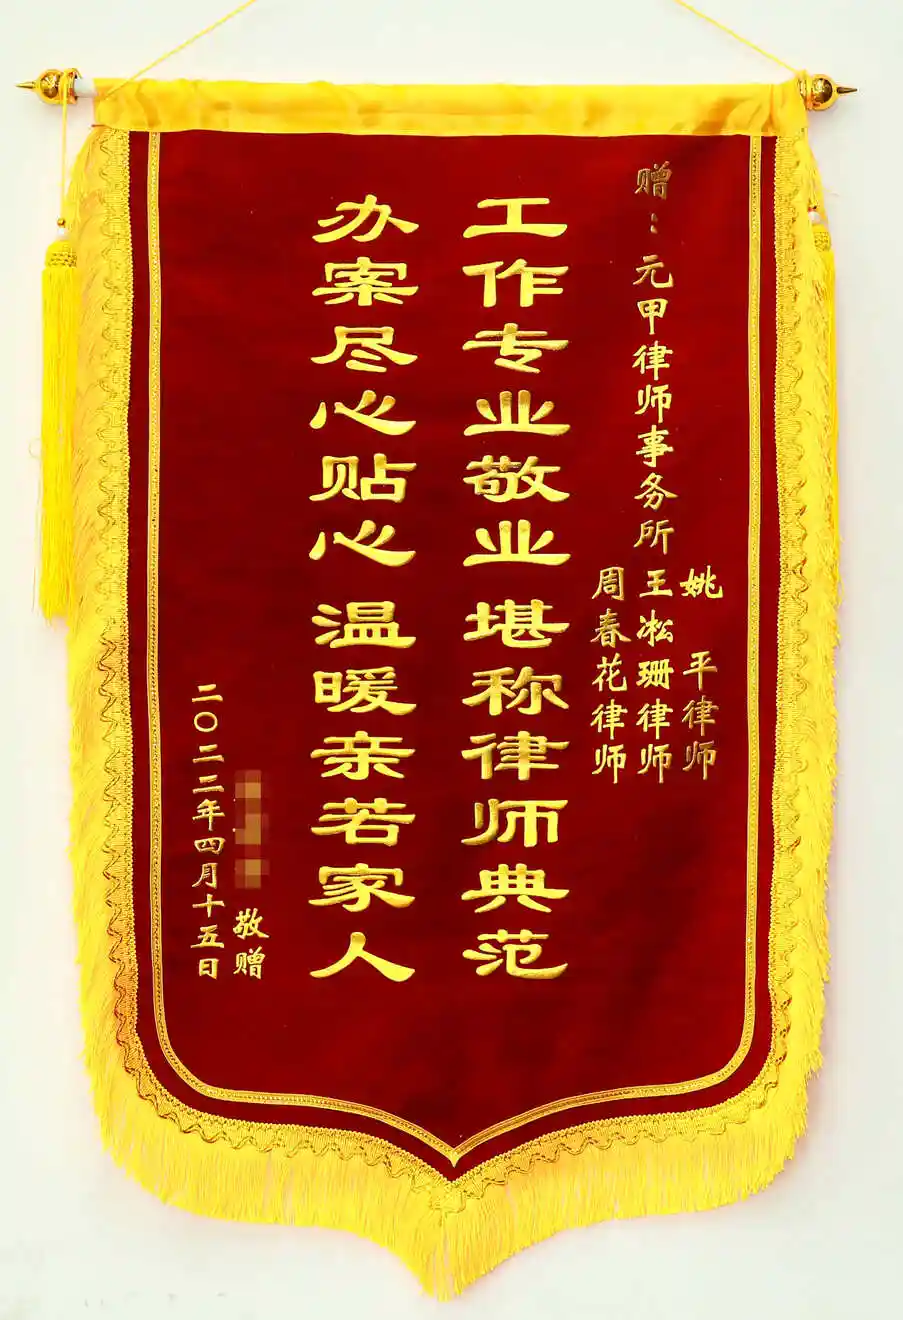 赠：元甲律师事务所
姚平律师
王凇珊律师
周春花律师
工作专业敬业堪称律师典范
办案尽心贴心温暖亲若家人
敬赠
二〇二三年四月十五日